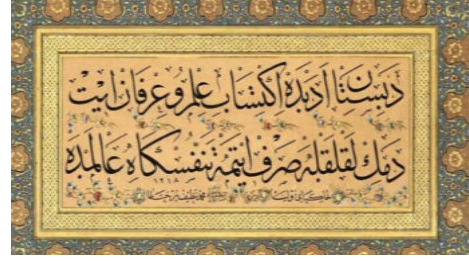 دبستان ادبده اكتساب علم و عرفان ايت
دمك لقلقله صرف ايتمه تنفسكاه عالمده